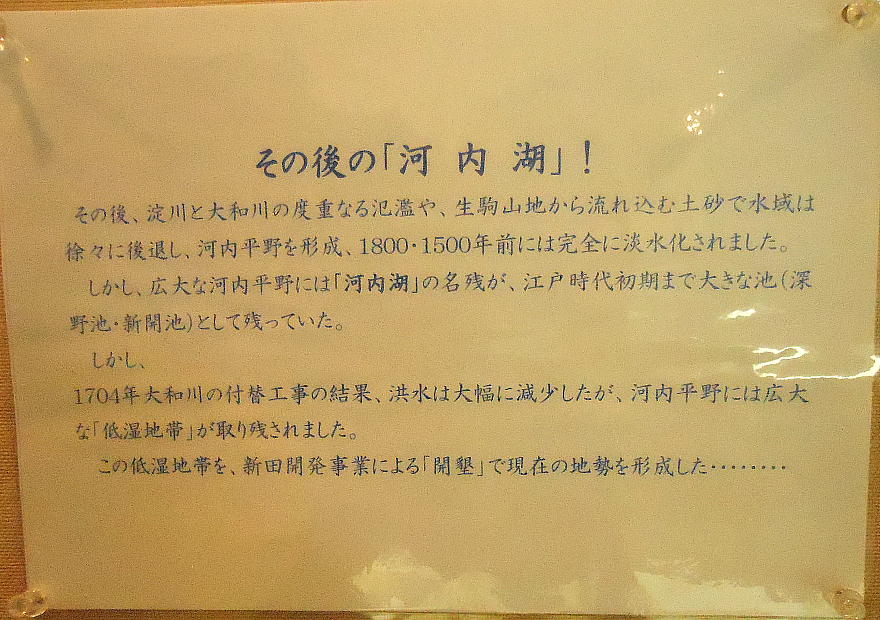 その後の「河 内 湖」!
その後、淀川と大和川の度重なる氾濫や、生駒山地から流れ込む土砂で水域は
徐々に後退し、河内平野を形成、1800・1500年前には完全に淡水化されました。
しかし、広大な河内平野には「河内湖」の名残が、江戸時代初期まで大きな池(深
野池・新開池)として残っていた。
しかし、
1704年大和川の付替工事の結果、洪水は大幅に減少したが、河内平野には広大
な「低湿地帯」が取り残されました。
この低湿地帯を、新田開発事業による「開墾」で現在の地勢を形成した・・・・・・・・